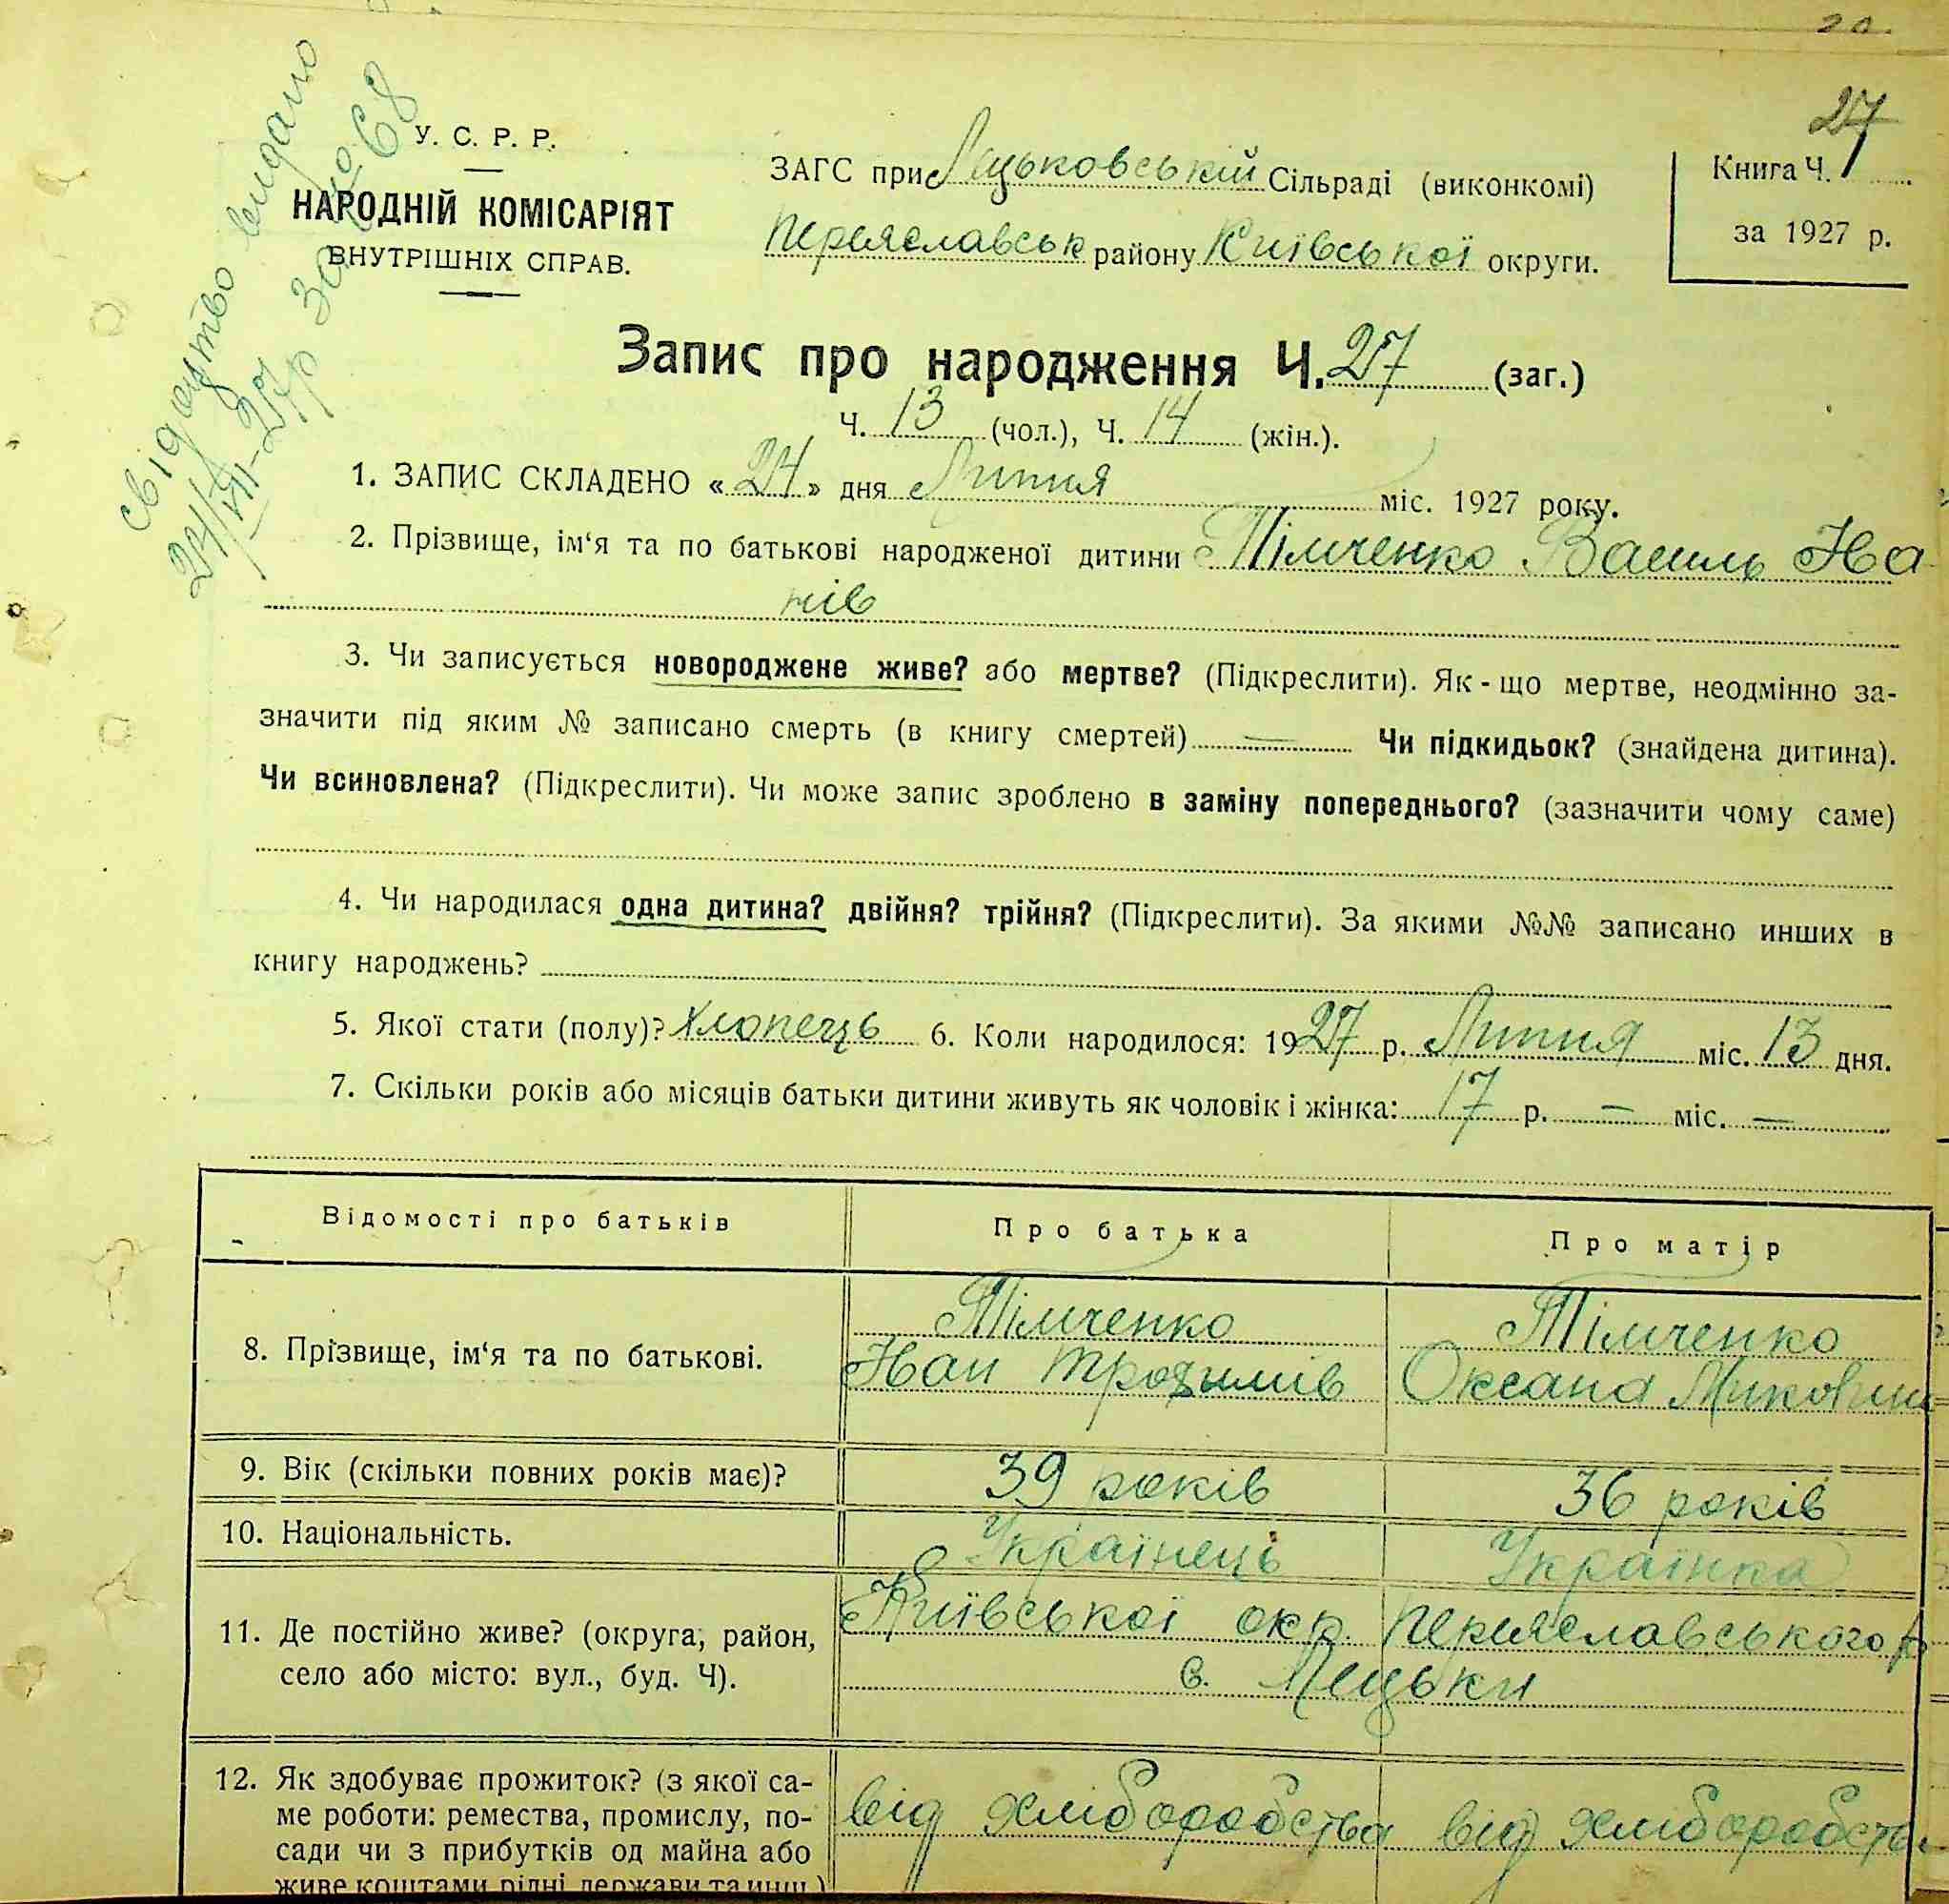 20.
27
свідоцтво видано
24/VII-27 р За № 68
У. С. Р. Р.
НАРОДНІЙ КОМІСАРІЯТ
ВНУТРІШНІХ СПРАВ.
ЗАГС при Лецьковській Сільраді (виконкомі)
Переяславськ району Київської округи.
Книга Ч. 1
за 1927 р.
Запис про народження Ч. 27 (заг.)
Ч. 13 (чол.), Ч. 14 (жін.).
1. ЗАПИС СКЛАДЕНО «24» дня Липня міс. 1927 року.
2. Прізвище, ім‘я та по батькові народженої дитини Тімченко Василь Іва
нів
3. Чи записується новороджене живе? або мертве? (Підкреслити). Як-що мертве, неодмінно за-
значити під яким № записано смерть (в книгу смертей) — Чи підкидьок? (знайдена дитина).
Чи всиновлена? (Підкреслити). Чи може запис зроблено в заміну попереднього? (зазначити чому саме)
4. Чи народилася одна дитина? двійня? трійня? (Підкреслити). За якими №№ записано инших в
книгу народжень?
5. Якої стати (полу)? хлопець 6. Коли народилося: 1927 р. Липня міс. 13 дня.
7. Скільки років або місяців батьки дитини живуть як чоловік і жінка: 17 р. — міс. —
Відомості про батьків Про батька Про матір
8. Прізвище, ім‘я та по батькові.
Тімченко
Іван Трохымів
Тімченко
Оксана
9. Вік (скільки повних років має)? 39 років 36 років
10. Національність. Українець Українка
11. Де постійно живе? (округа, район,
село або місто: вул., буд. Ч).
Київської окр. Переяславського р
с. Лецьки
12. Як здобуває прожиток? (з якої са-
ме роботи: ремества, промислу, по-
сади чи з прибутків од майна або
живе коштами рідні, держави та инш.)
від хліборобства від хліборобств